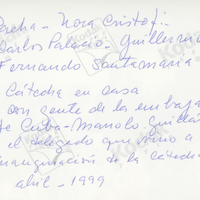 Pacha - Nora Cristófi..
Carlos Palacio - Guillermo
Fernando Santamaria
Cátedra en casa
con gente de la embaja
de Cuba - Manolo Guillé
el delegado que vino a
inauguración de la cátedra
abril - 1999
Kodak